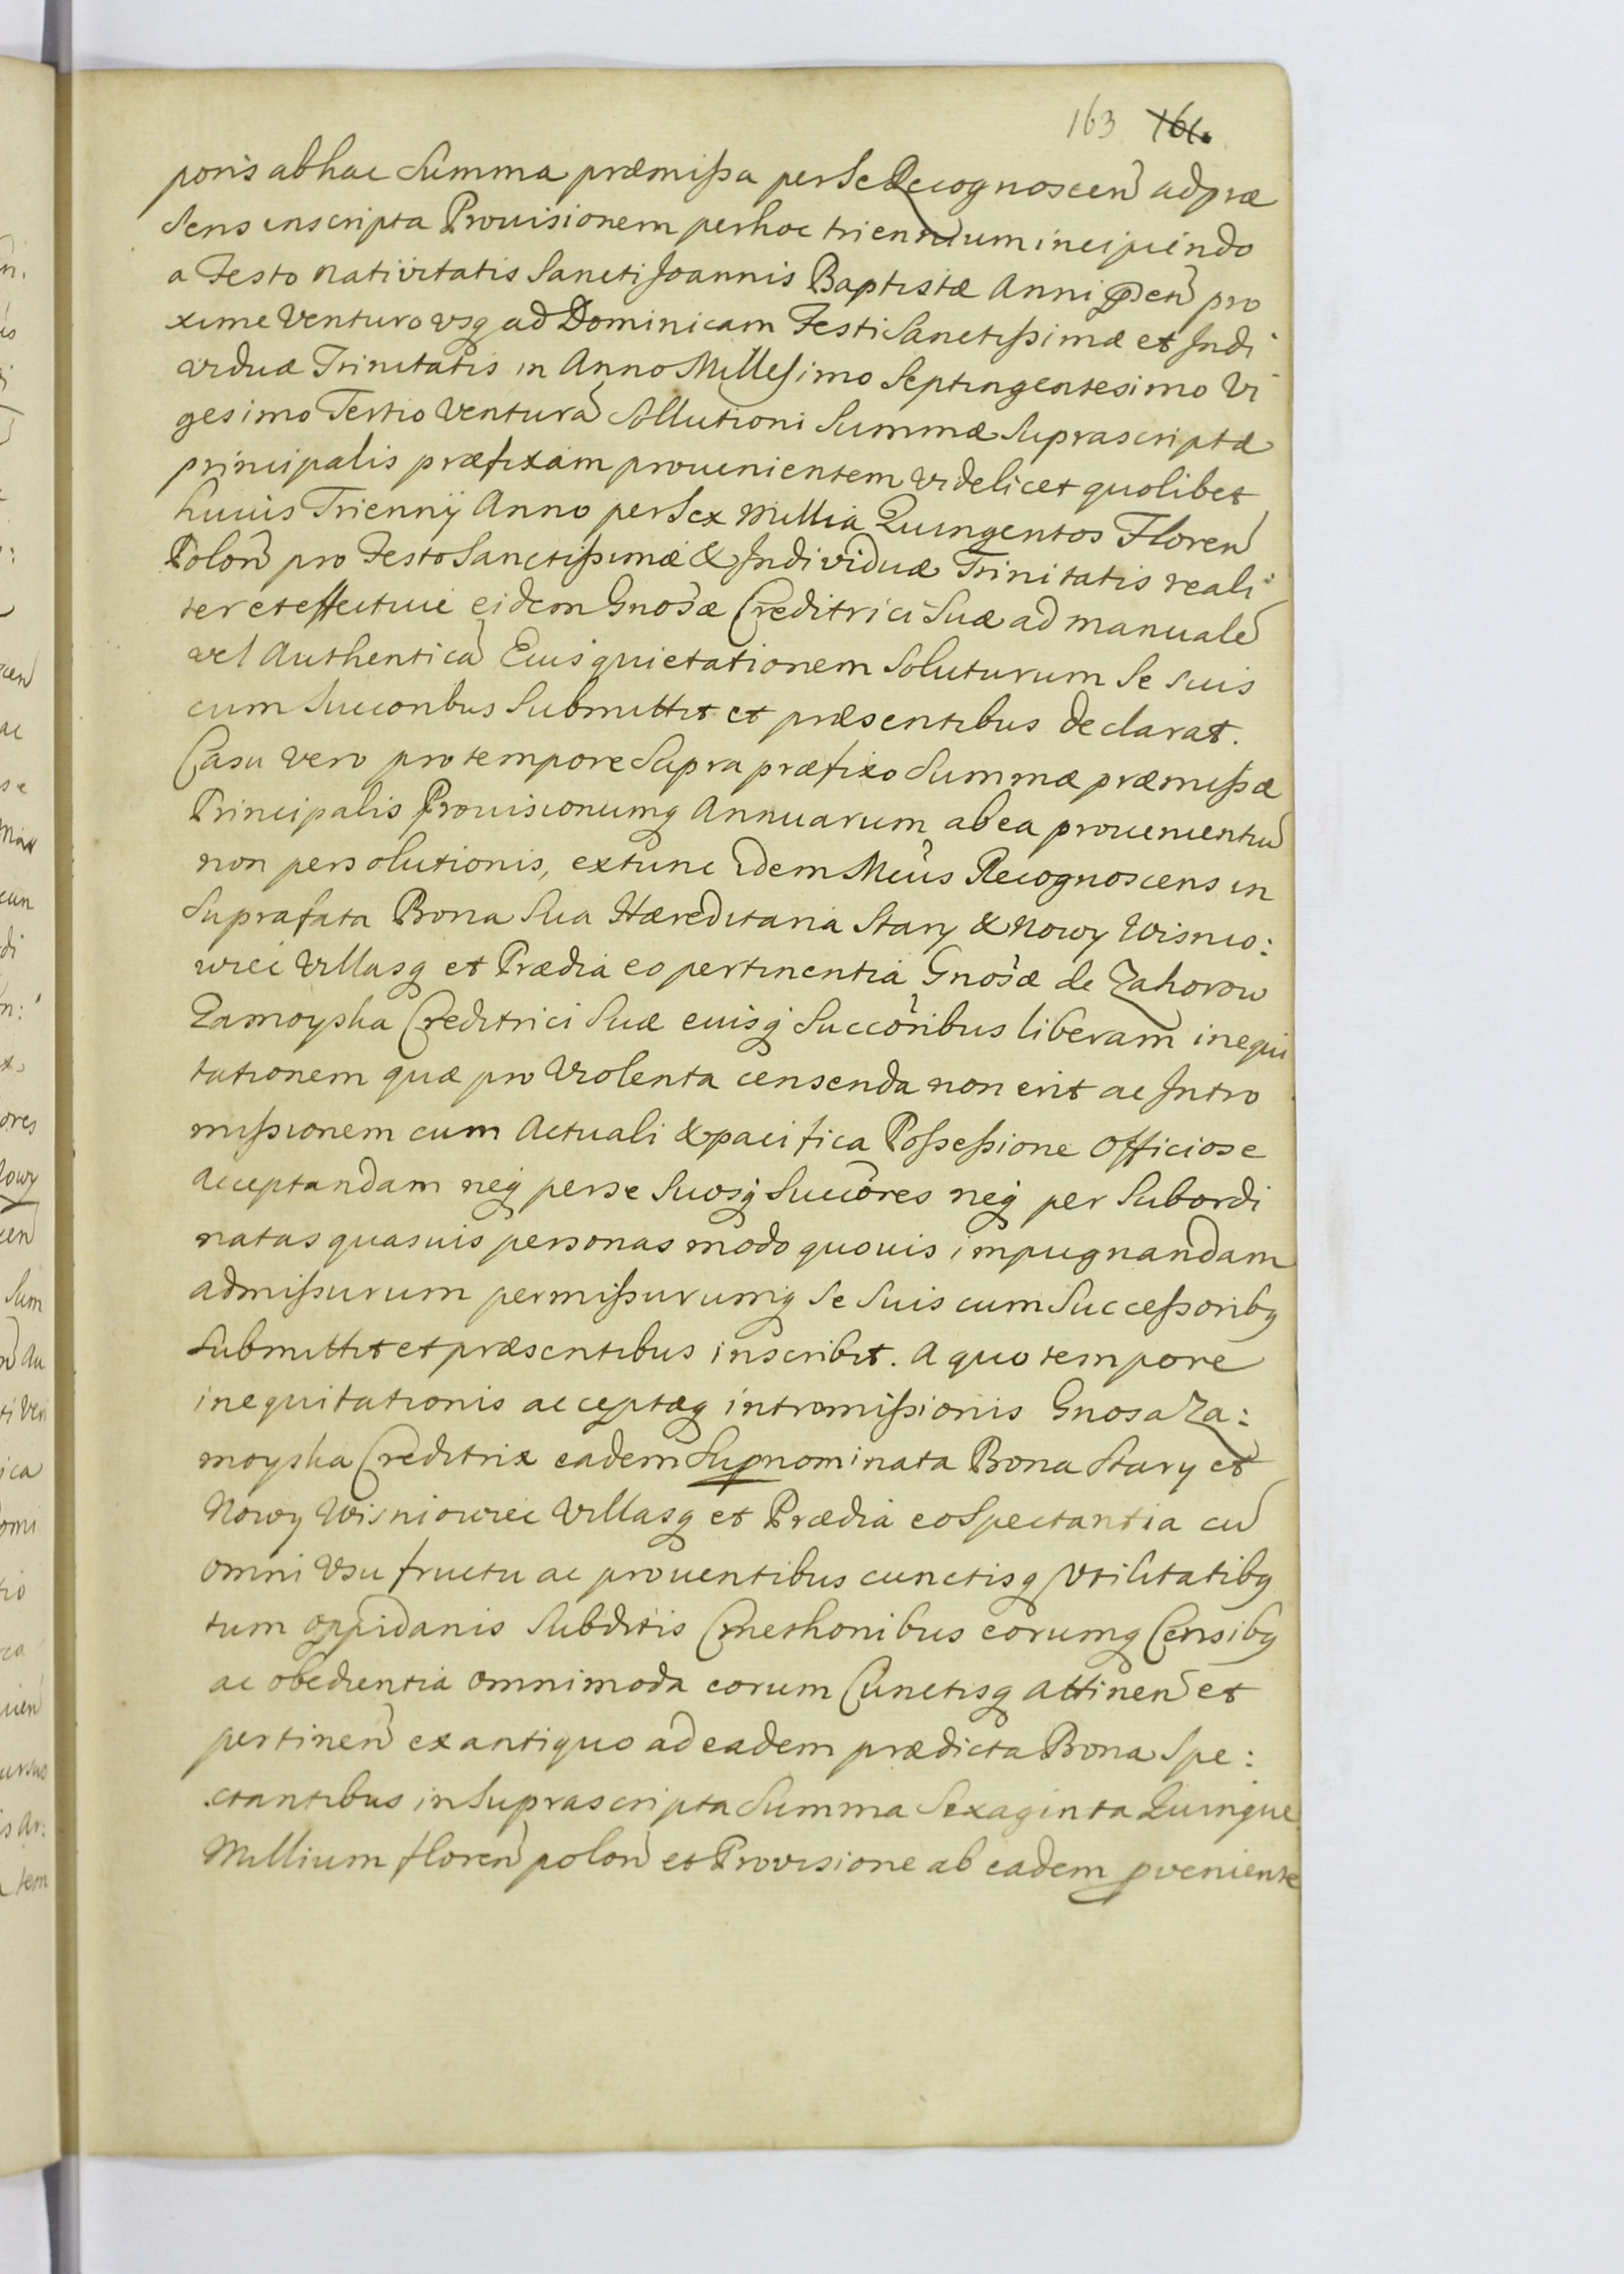 163 161.
poris ab hac Summa præmissa per Se Recognoscen ad præ
sens inscripta Prouisionem per hoc triennium incipiendo
a Festo Nativitatis Sancti Joannis Baptistæ Anni pñtn pro
xime Venturo vsq ad Dominicam Festi Sanctissimæ et Indi
viduæ Trinitatis in Anno Millesimo Septingentesimo Vi
gesimo Tertio Ventura Sollutioni Summæ Suprascriptæ
principalis præfixam prouenientem videlicet quolibet
huius Triennij Anno per Sex Millia Quingentos Floren
Polon pro Festo Sanctissimæ & Individuæ Trinitatis reali
ter et effectiue eidem Gnosæ Creditrici Suæ ad manuale
vel Authentica Eius quietationem Soluturum Se suis
cum Succoribus Submittit et præsentibus declarat.
Casu vero pro tempore Supra præfixo Summæ præmissæ
Principalis Prouisionumq Annuarum ab ea prouenientiu
non persolutionis, extunc idem Mcus Recognoscens in
Suprafata Bona Sua Hæreditaria Stary & Nowy Wisnio:
wiec Villasq et Prædia eo pertinentia Gnosæ de Zahorow
Zamoyska Creditrici Suæ euisq Succoribus liberam inequi
tationem quæ pro Violenta censenda non erit ac Intro
missionem cum Actuali & pacifica Possessione Officiose
acceptandam neq per se Suosq Succores neq per Subordi
natas quasuis personas modo quouis impugnandam
admissurum permissurumq Se Suis cum Successoribq
Submittit et præsentibus inscribit. A quo tempore
inequitationis acceptæq intromissionis Gnosa Za:
moyska Creditrix eadem Supnominata Bona Stary et
Nowy Wisniowiec Villasq et Prædia eo Spectantia cu
omni Vsu fructu ac prouentibus cunctisq Vtilitatibq
tum oppidanis Subditis Cmethonibus eorumq Censibq
ac obedientia omnimoda eorum Cunctisq attinen et
pertinen ex antiquo ad eadem prædicta Bona Spe:
ctantibus in Suprascripta Summa Sexaginta Quinque
Millium floren polon et Provisione ab eadem pveniente